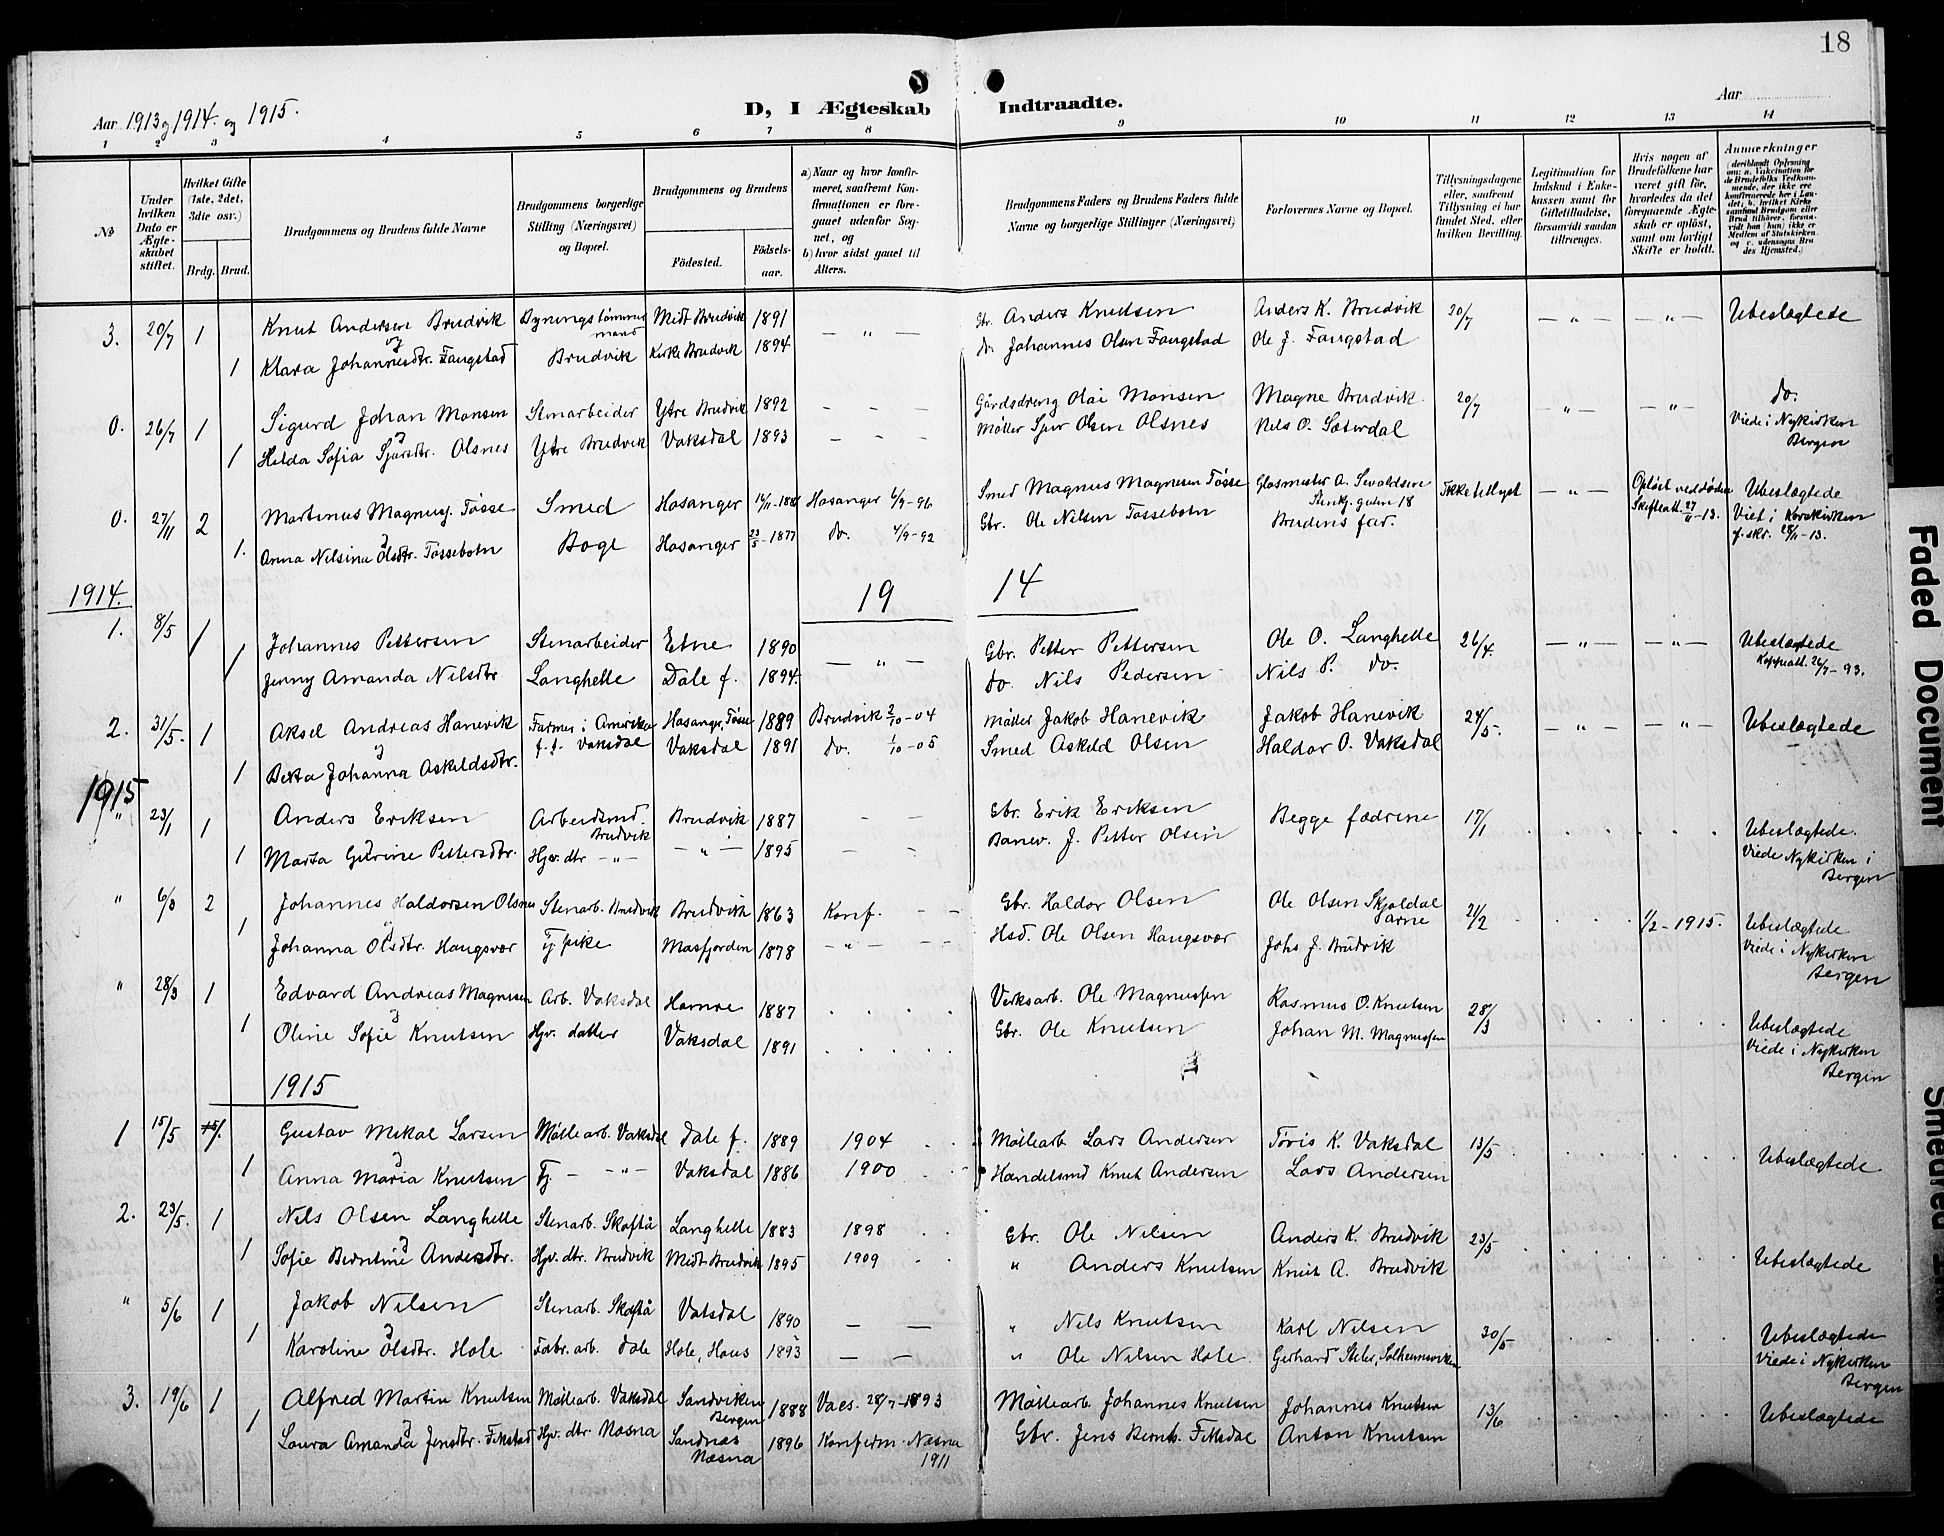 18
Aar 1913 og 1914. og 1915.
D, I Ægteskab Indtraadte.
Aar
1 2 3 4 5 6 7 8 9 10 11 12 13 14
No
Under hvilken Dato er Ægteskabet stiftet.
Hvilket Gifte (1ste, 2det, 3die osv.)
Brdg. Brud.
Brudgommens og Brudens fulde Navne
Brudgommens borgerlige Stilling (Næringsvei) og Bopæl.
Brudgommens og Brudens
Fødested. Fødselsaar.
a) Naar og hvor konfirmeret, saafremt Konfirmationen er foregaaet udenfor Sognet, og
b) hvor sidst gaaet til Alters.
Brudgommens Faders og Brudens Faders fulde Navne og borgerlige Stillinger (Næringsvei)
Forlovernes Navne og Bopæl.
Tillysningsdagene eller, saafremt Tillysning ei har fundet Sted, efter hvilken Bevilling.
Legitimation for Indskud i Enkekassen samt for Giftetilladelse, forsaavidt saadan tiltrænges.
Hvis nogen af Brudefolkene har været gift før, hvorledes da det foregaaende Ægteskab er opløst, samt om lovligt Skifte er holdt.
Anmærkninger
(deriblandt Oplysning om: a. Vakcination for de Brudefolks Vedkommende, der ikke ere konfirmerede her i Landet, b. hvilket Kirkesamfund Brudgom eller Brud tilhører, forsaavidt han (hun) ikke er Medlem af Statskirken. og c. udensogns Brudes Hjemsted.)
3. 20/7 1 Knut Andersen Brudvik Bygningstømmermand Midt Brudvik 1891 — " — Gbr. Anders Knutsen Anders K. Brudvik 20/7 — " — — " — Ubeslægtede
og
1 Klara Johannesdtr. Fangstad Brudvik Kirke Brudvik 1894 do. Johannes Olsen Fangstad Ole J. Fangstad
0. 26/7 1 Sigurd Johan Monsen Stenarbeider Ytre Brudvik 1892 — — — Gårdsdreng Olai Monsen Magne Brudvik 20/7 — " — — " — do.
1 Hilda Sofia Sjursdtr. Olsnes Ytre Brudvik Vaksdal 1893 — — — Møller Sjur Olsen Olsnes Nils O. Sæterdal Viede i Nykirken
Bergen
0. 27/11 2 Martinus Magnusj. Tøsse Smed Hosanger 1881 Hosanger 4/9-96 Smed Magnus Magnusen Tøsse Glasmester A. Sevaldsen Ikke tillyst — " — Opløst ved døden Ubeslægtede
Skifteatt. 27/11-13. Viet i Korskirken
1. Anna Nilsina Olsdtr. Tøssebotn Boge Hosanger 23/5-1877 do. 4/9-92 Gbr. Ole Nilsen Tøssebotn Brudens far. 28/11-13.
1914. 19 14
1. 8/5 1 Johannes Pettersen Stenarbeider Etne 1890 — " — Gbr. Petter Pettersen Ole O. Langhelle 26/4. — " — — " — Ubeslægtede
1 Jenny Amanda Nilsdtr Langhelle Dale f. 1894. do. Nils Pedersen Nils P. do. Koppeatt. 26/7-93.
2. 31/5. 1 Aksel Andreas Hanevik Farmer i Amerika Hosanger, Tøsse 1889 Brudvik 2/10-04 Møller Jakob Hanevik Jakob Hanevik 24/5- — " — — " — Ubeslægtede
f. t. Vaksdal Vaksdal 1891 do. 1/10-05 Smed Askild Olsen Haldor O. Vaksdal
1 Berta Johanna Askildsdtr.
1915
" 23/1 1 Anders Eriksen Arbeidsmd. Brudvik Brudvik 1887 — — Gbr. Erik Eriksen Begge fædrene 17/1 Ubeslægtede.
1 Marta Gurine Pettersdtr. Hjv. dtr — " — — " — 1895 — — Banev. J. Petter Olsen Viede Nykirken i
Bergen
" 6/3 2 Johannes Haldorsen Olsnes Stenarb. Brudvik Brudvik 1863 Konf. — — Gbr. Haldor Olsen Ole Olsen Skjoldal Arne 21/2 1/2-1915. Ubeslægtede
1 Johanna Olsdtr. Haugsvær Tj. pike Masfjorden 1878 — " — — Hsd. Ole Olsen Haugsvær Johs J. Brudvik Viede i Nykirken
Bergen
" 28/3 1 Edvard Andreas Magnusen Arb. Vaksdal Hamre 1887 Verksarb. Ole Magnussen Rasmus O. Knutsen 28/3 Ubeslægtede
1 Oline Sofie Knutsen Hjv. datter Vaksdal 1891 Gbr. Ole Knutsen Johan M. Magnussen Viede i Nykirken
Bergen
1915
1 15/5 1. Gustav Mikal Larsen Møllearb. Vaksdal Dale f. 1889 1904 Møllearb Lars Andersen Tøris K. Vaksdal 13/5 Ubeslægtede
1 Anna Maria Knutsen Tj — " — Vaksdal 1886 1900 Handelsmd Knut Andersen Lars Andersen
2. 23/5. 1 Nils Olsen Langhelle Stenarb. Skaftå Langhelle 1883 1898 Gbr. Ole Nilsen Anders K. Brudvik 23/5 Ubeslægtede
1 Sofie Berntine Andersdtr. Hjv. dtr. Brudvik Midt-Brudvik 1895 1909 " Anders Knutsen Knut A. Brudvik
" 5/6 1 Jakob Nilsen Stenarb. Skaftå Vatsdal 1890 — — " Nils Knutsen Karl Nilsen 30/5 Ubeslægtede
1 Karoline Olsdtr. Hole Fabr. arb. Dale Hole, Haus 1893 — — " Ole Nilsen Hole. Gerhard Stiler, Solheimsviken Viede i Nykirken
Bergen
3. 19/6 1 Alfred Martin Knutsen Møllearb. Vaksdal Sandviken Bergen 1888 Vacs. 28/7-1893 Møllearb Johannes Knutsen Johannes Knutsen 13/6 Ubeslægtede
1 Laura Amanda Jensdtr. Fikstad Hjv. dtr. Næsna Sandnæs Næsna 1896 Konferm. Næsna 1911 Gbr. Jens Bernh. Fiksdal Anton Knutsen
Faded Document
Smeared Ink